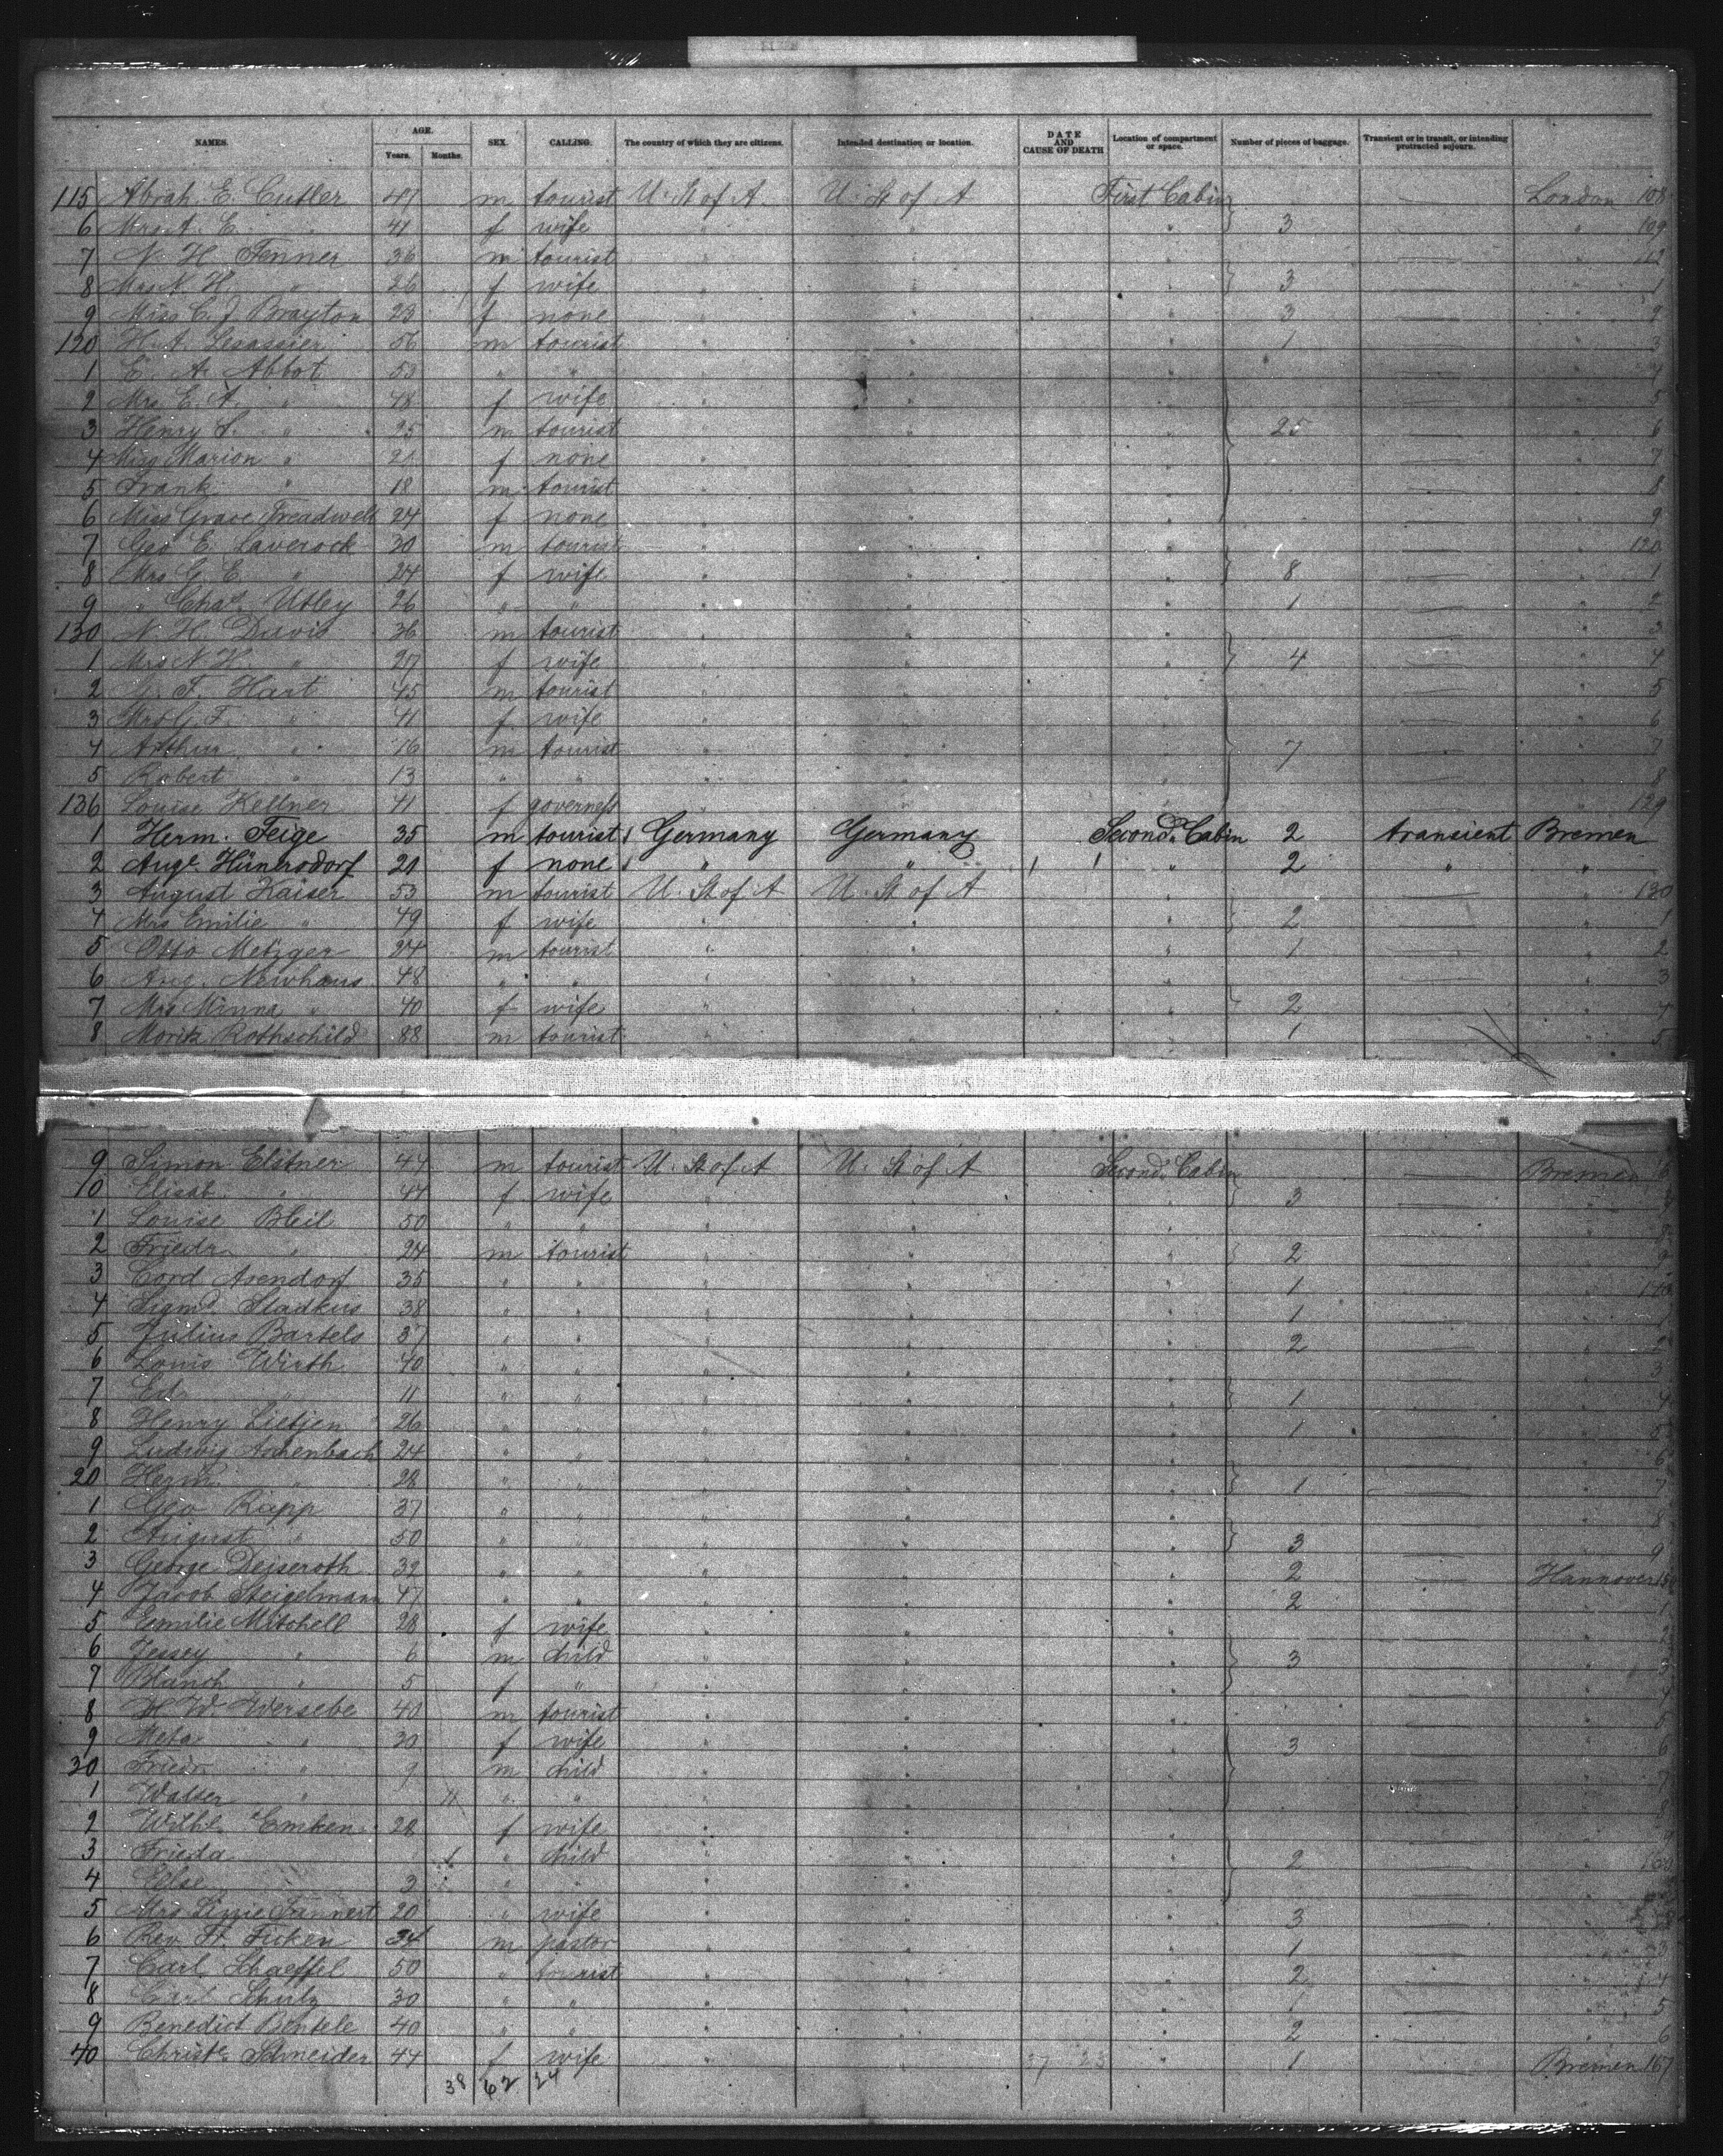 NAMES. AGE. Years. Months. SEX. CALLING. The country of which they are citizens. Intended destination or location. DATE AND CAUSE OF DEATH Location of compartment or space. Number of pieces of baggage. Transient or in transit, or intending protracted sojourn.
115 Abrah. E. Cutler 47 m tourist U. St of A. U. St of A First Cabin — London 108
6 Mrs A. E. " 41 f wife " " " 3 — " 109
7 N. H. Fenner 36 m tourist " " " —
8 Mrs N. H. " 26 f wife " " " 3 — " 1
9 Miss C. J. Brayton 23 f none " " " 3 — " 2
120 H. A. Lesassier 56 m tourist " " " 1 — " 3
1 E. A. Abbot 53 " " " " " — " 4
2 Mrs E. A. " 48 f wife " " " — " 5
3 Henry S. " 25 m tourist " " " 25 — " 6
4 Miss Marion " 21 f none " " " — " 7
5 Frank " 18 m tourist " " " — " 8
6 Miss Grace Treadwell 24 f none " " " — " 9
7 Geo E. Laverock 30 m tourist " " " — " 120
8 Mrs G. E. " 24 f wife " " " 8 — " 1
9 " Chas. Utley 26 " " " " " 1 — " 2
130 N. H. Davis 36 m tourist " " " — " 3
1 Mrs N. H. " 27 f wife " " " 4 — " 4
2 G. F. Hart 45 m tourist " " " — " 5
3 Mrs G. F. " 41 f wife " " " — " 6
4 Arthur " 16 m tourist " " " 7 — " 7
5 Robert " 13 " " " " " — " 8
136 Louise Kellner 41 f governess " " " — " 129
1 Herm. Feige 35 m tourist Germany Germany Second Cabin 2 transient Bremen
2 Auge Hünersdorf 21 f none " " " 2 " "
3 August Kaiser 53 m tourist U. St of A U. St of A " — " 130
4 Mrs Emilie " 49 f wife " " " 2 — " 1
5 Otto Metzger 24 m tourist " " " 1 — " 2
6 Aug. Newhaus 48 " " " " " — " 3
7 Mrs Minna " 40 f wife " " " 2 — " 4
8 Moritz Rothschild 88 m tourist " " " 1 — " 5
9 Simon Elstner 47 m tourist U. St of A U. St of A Second Cabin — Bremen 6
10 Elisab. " 44 f wife " " " 3 —
1 Louise Bleil 50 " " " " " — " 8
2 Friedr. " 24 m tourist " " " 2 — " 9
3 Cord Asendorf 35 " " " " " 1 — " 140
4 Sigmd. Sladkus 38 " " " " " 1 — "
5 Julius Bartels 37 " " " " " 2 — " 2
6 Louis Wirth 40 " " " " " — " 3
7 Ed. " 11 " " " " " 1 — " 4
8 Henry Lietjen 26 " " " " " 1 — " 5
9 Ludwig Achenbach 24 " " " " " — " 6
20 Herm. " 28 " " " " " 1 — " 7
1 Geo Rapp 37 " " " " " — " 8
2 August " 50 " " " " " 3 — " 9
3 George Deiseroth 32 " " " " " 2 — Hannover 150
4 Jacob Steigelmann 47 " " " " " 2 — " 1
5 Emilie Mitchell 28 f wife " " " — " 2
6 Jessey " 6 m child " " " 3 — " 3
7 Blanch " 5 f " " " " — " 4
8 H W. Wersebe 40 m tourist " " " — " 5
9 Meta " 30 f wife " " " 3 — " 6
30 Friedr. " 9 m child " " " — " 7
1 Walter " 11 " " " " " — " 8
2 Wilhe. Emken 28 f wife " " " — "
3 Frieda " " child " " " 2 — "
4 Else " " " " " " — "
5 Mrs Lizzie Tannert 20 " wife " " " 3 — "
6 Rev. Fr. Ficken 34 m pastor " " " 1 — " 3
7 Carl Schaeffel 50 " tourist " " " 2 — " 4
8 Carl Schulz 30 " " " " " 1 — " 5
9 Benedict Bentele 40 " " " " " 2 — " 6
40 Christe. Schneider 44 f wife " " " 1 — Bremen 167
38 62 24